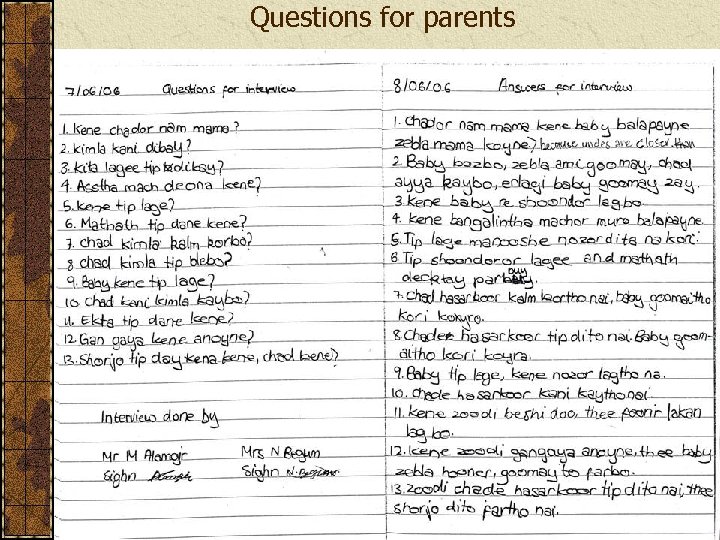 Questions for parents
7/06/06 Questions for interview
1. Kene chador nam mama?
2. Kimla kani dibay?
3. Kita lagee tip dibay?
4. Aestha mach deona kene?
5. Kene tip lage?
6. Mathath tip dane kene?
7. chad kimla kalm korbo?
8 chad kimla tip debo?
9. Baby kene tip lage?
10. Chad kani kimla kaybo?
11. Ekta tip dane kene?
12. Gan gaya kene anoyne?
13. Shorjo tip day kena kene, chad kene?
Interview done by
Mr M Alamgir
Sighn
Mrs N Begum
Sighn N. Begum
8/06/06 Answers for interview
1. Chador nam mama kene baby balapayne
zebla mama koyne? because uncles are closer than
2. Baby bozbo, zebla ami goomay, chad
ayya kaybo, erlagi baby goomay zay.
3. Kene baby re shoondor legbo.
4. Kene bangalintha machor mura balapayne.
5. Tip lage manooshe nozor dita na kori.
6 Tip shoondoror lagee and mathath
decktay
7. Chad hasarkoor kalm koortho nai, baby goomaitho
kori koyra.
8. Chade hasarkoor tip dito nai. Baby goom-
aitho kori koyra.
9. Baby tip lage, kene nozor lagtho na.
10. Chade hasarkoor kani kaythonai.
11. Kene zoodi beshi dno, thee foonir lakan
lagbo.
12. Kene zoodi gangaya anoyne, thee baby
zebla hooner, goomay to farbo.
13. Zoodi chade hasarkoor tip dito nai, thee
shorjo dito fartho nai.